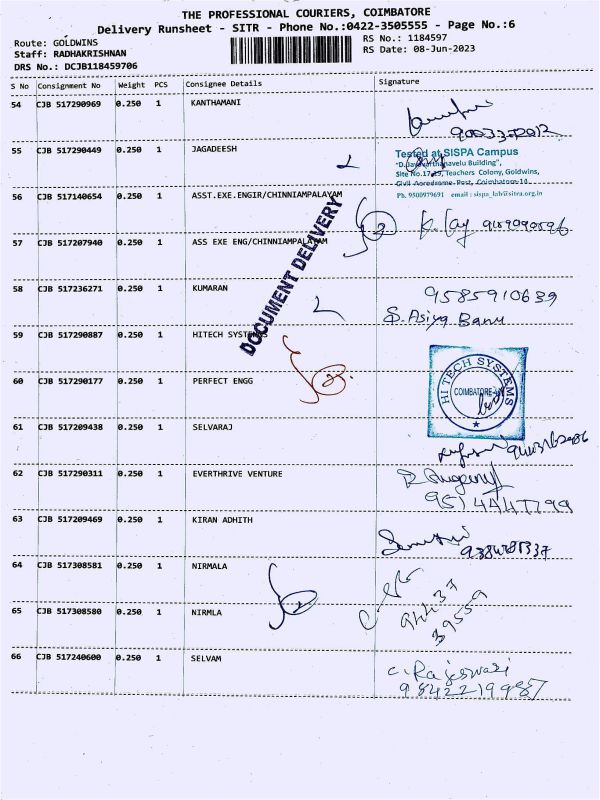 THE PROFESSIONAL COURIERS, COIMBATORE
Delivery Runsheet - SITR - Phone No.:0422-3505555 - Page No.:6
Route: GOLDWINS RS No.: 1184597
Staff: RADHAKRISHNAN RS Date: 08-Jun-2023
DRS No.: DCJB118459706
S No Consignment No Weight PCS Consignee Details Signature
54 CJB 517290969 0.250 1 KANTHAMANI
55 CJB 517290449 0.250 1 JAGADEESH
Tested at SISPA Campus
Site No.17,19, Teachers Colony, Goldwins,
Civil Aerodrome Post, Coimbatore-14
Ph. 9500979691 email : sispa_lab@sitra.org.in
56 CJB 517140654 0.250 1 ASST.EXE.ENGIR/CHINNIAMPALAYAM
57 CJB 517207940 0.250 1 ASS EXE ENG/CHINNIAMPALAYAM
DOCUMENT DELIVERY
58 CJB 517236271 0.250 1 KUMARAN 9585910639
S. Asiya Banu
59 CJB 517290887 0.250 1 HITECH SYSTEMS
60 CJB 517290177 0.250 1 PERFECT ENGG
HI TECH SYSTEMS
COIMBATORE
61 CJB 517209438 0.250 1 SELVARAJ
62 CJB 517290311 0.250 1 EVERTHRIVE VENTURE
63 CJB 517209469 0.250 1 KIRAN ADHITH
64 CJB 517308581 0.250 1 NIRMALA
65 CJB 517308580 0.250 1 NIRMLA
66 CJB 517240600 0.250 1 SELVAM
C. Rajeswari
9842219987